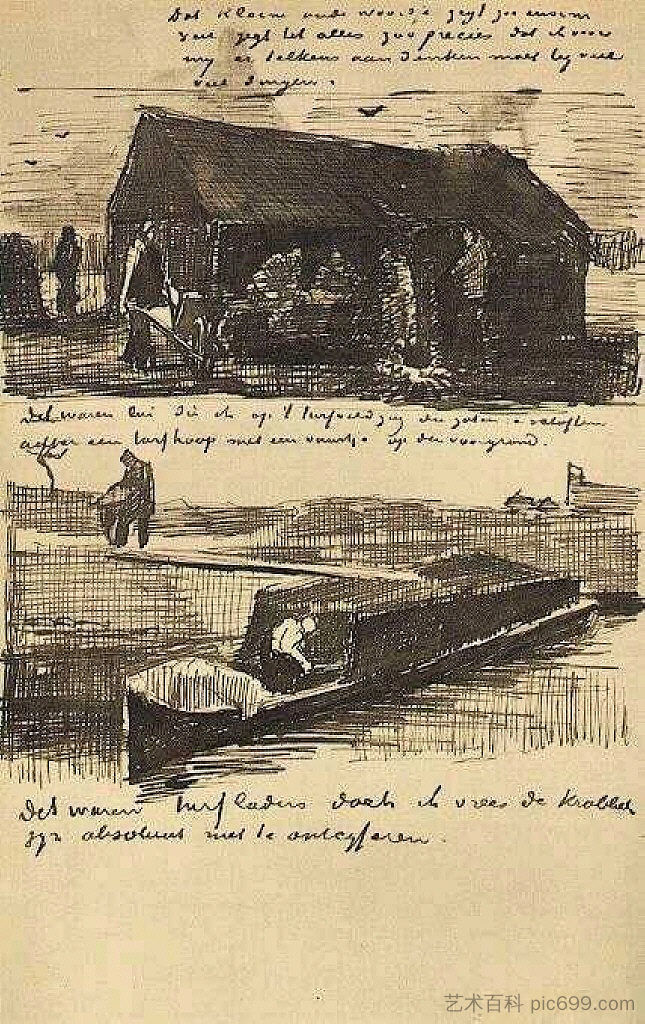 Dat kleine oude woordje zegt zoo enorm
veel zegt het alles zoo precies dat ik voor
my er telkens aan denken moet by veel
veel dingen.
Dat waren lui die ik op 't turfveld zag die zaten
achter een turfhoop met een vuurtje op den voorgrond.
Dit waren turfladers doch ik vrees de krabbels
zyn absoluut niet te ontcyferen.
艺术百科 pic699.com